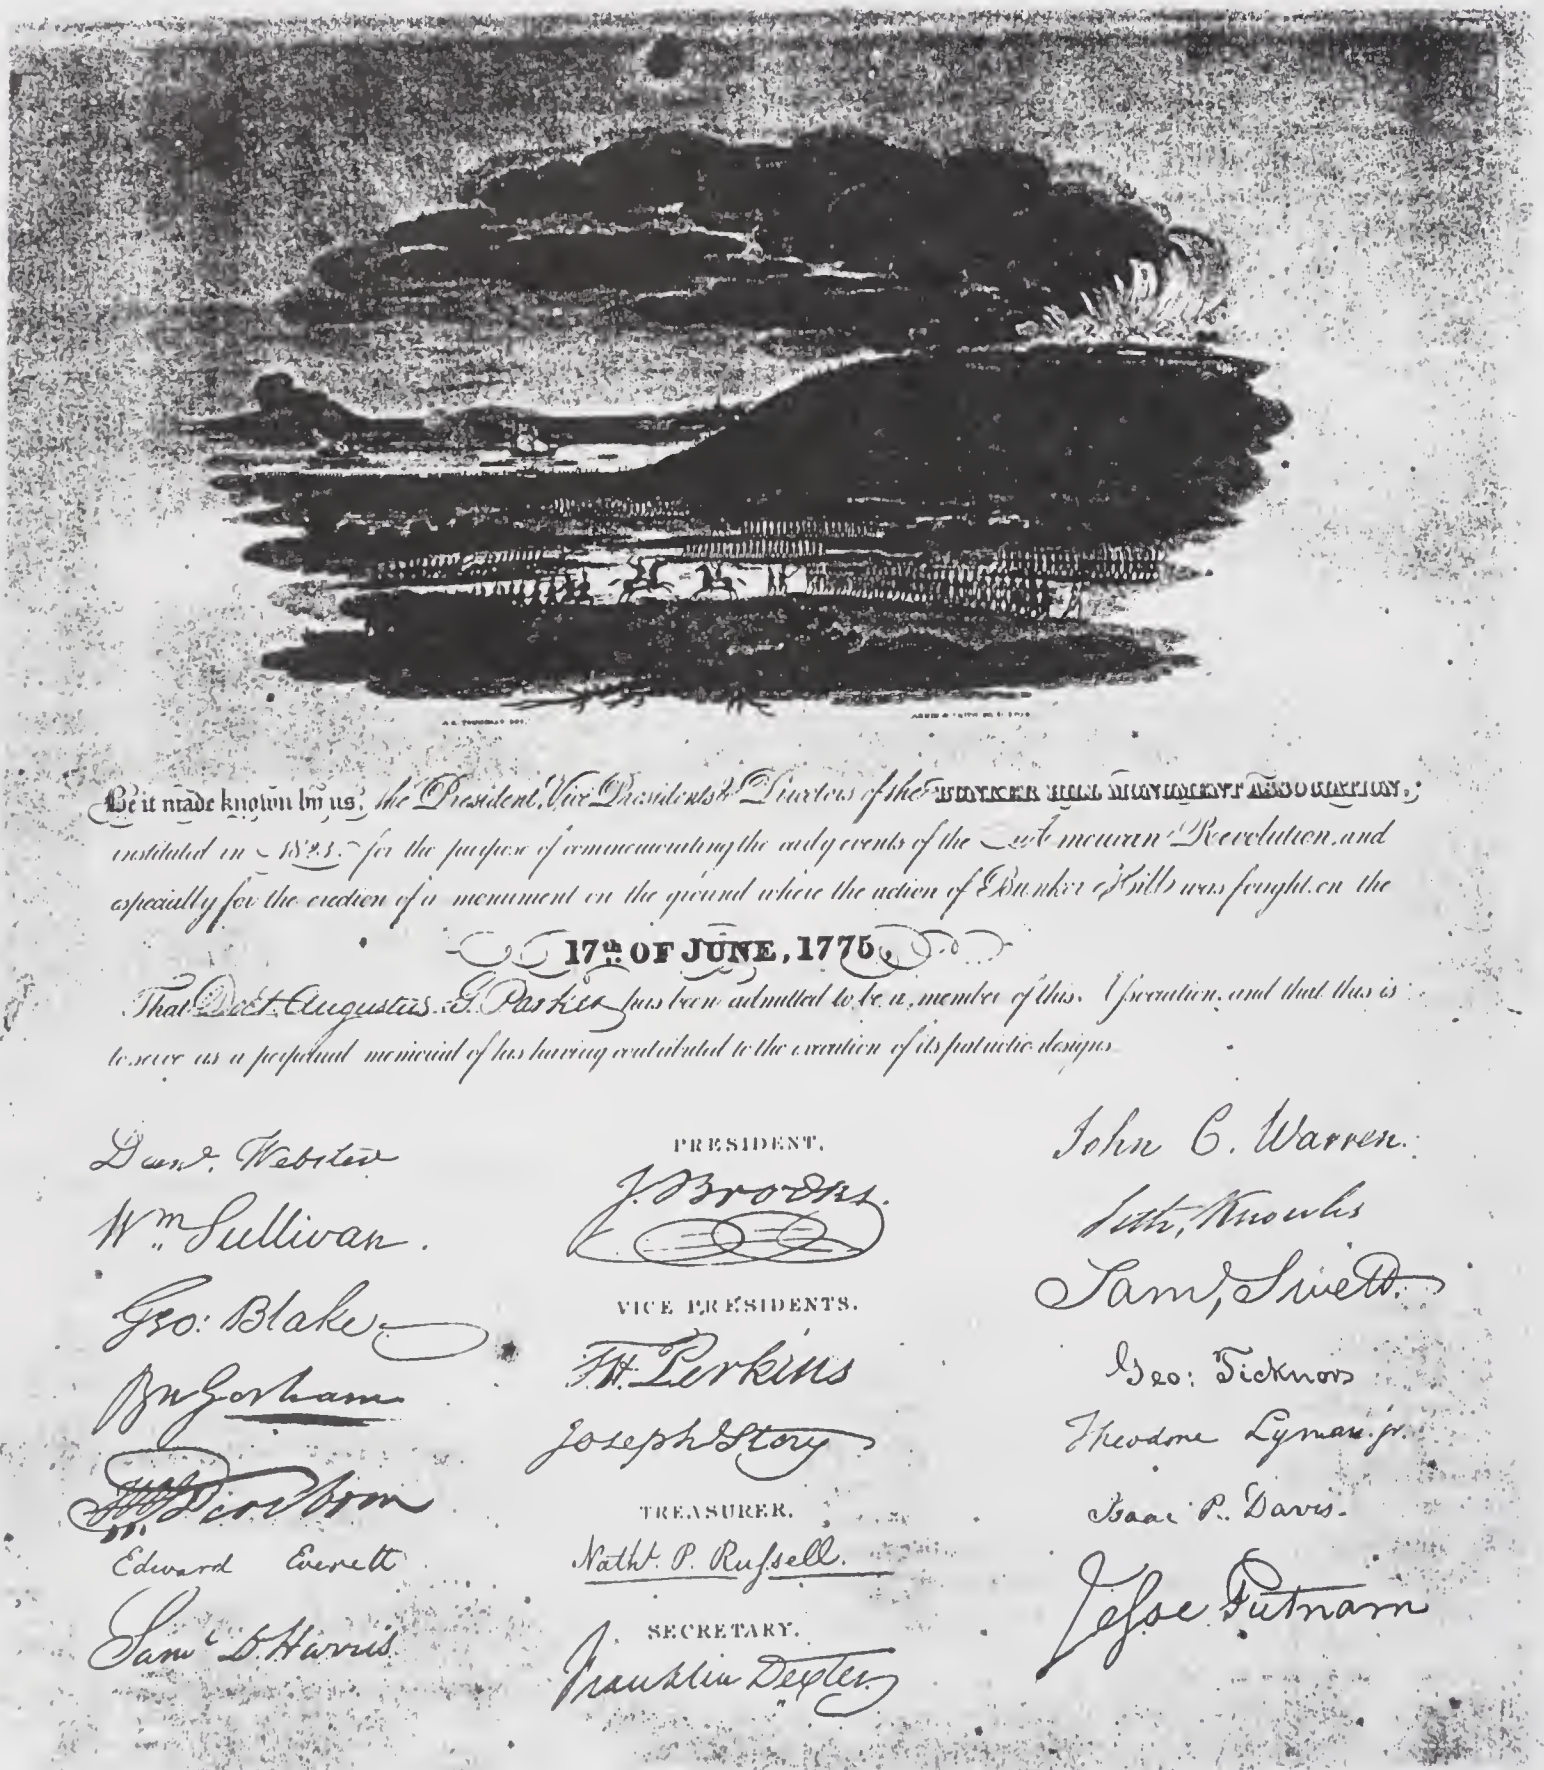 Be it made known by us, the President, Vice Presidents & Directors of the BUNKER HILL MONUMENT ASSOCIATION,
instituted in 1823. for the purpose of commemorating the early events of the American Revolution, and
especially for the erection of a monument on the ground where the action of Bunker Hill was fought, on the
17th OF JUNE, 1775,
That Doct. Augustus G. Parker has been admitted to be a member of this Association, and that this is
to serve as a perpetual memorial of his having contributed to the execution of its patriotic designs
Danl. Webster
Wm Sullivan.
Geo: Blake
Bn Gorham
Dearborn
Edward Everett
Saml D. Harris
PRESIDENT.
J. Brooks.
VICE PRESIDENTS.
T.H. Perkins
Joseph Story
TREASURER.
Nathl. P. Russell.
SECRETARY.
Franklin Dexter
John C. Warren.
Seth, Knowles
Saml, Swett.
Geo: Ticknor
Theodore Lyman jr.
Isaac P. Davis.
Jesse Putnam